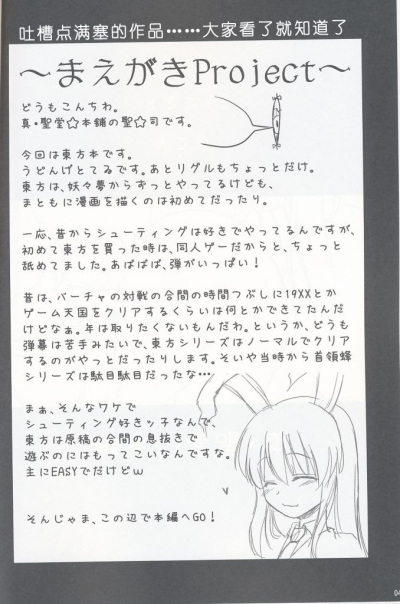 吐槽点满塞的作品……大家看了就知道了
～まえがきProject～
どうもこんちわ。
真・聖堂☆本舗の聖☆司です。
今回は東方本です。
うどんげとてゐです。あとリグルもちょっとだけ。
東方は、妖々夢からずっとやってるけども、
まともに漫画を描くのは初めてだったり。
一応、昔からシューティングは好きでやってるんですが、
初めて東方を買った時は、同人ゲーだからと、ちょっと
舐めてました。あばばば、弾がいっぱい！
昔は、バーチャの対戦の合間の時間つぶしに19XXとか
ゲーム天国をクリアするくらいは何とかできてたんだ
けどなぁ。年は取りたくないもんだわ。というか、どうも
弾幕は苦手みたいで、東方シリーズはノーマルでクリア
するのがやっとだったりします。そいや当時から首領蜂
シリーズは駄目駄目だったな…
まぁ、そんなワケで
シューティング好きッ子なんで、
東方は原稿の合間の息抜きで
遊ぶのにはもってこいなんですな。
主にEASYでだけどw
そんじゃま、この辺で本編へGO！